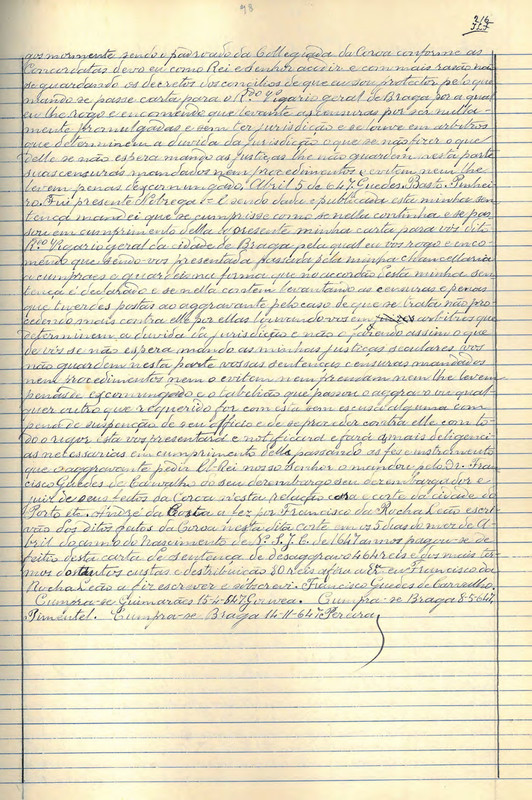 98
gos mormente sendo o padroado da Collegiada da Coroa conforme as
Concordatas devo eu como Rei e Senhor acudir e com mais rasão não
se guardando os decretos dos concilios de que eu sou protector pelo que
mando se passe carta para o R.do Vigario geral de Braga por a qual
eu lhe rogo e encomendo que levante as censuras por ser nulla
mente promulgadas e sem ter jurisdicção e se louve em arbitros
que determinem a duvida da jurisdicção o que se não fizer o que
delle se não espera mando as justiças lhe não guardem nesta parte
suas censuras mandados nem procedimentos o evitem nem lhe
levem penas de excomungado. Abril 5 de 647. Guedes. Basto. Pinhei
ro. Fui presente Nobrega E sendo dada e publicada esta minha sen
tença mandei que se cumprisse como se nella continha e se pas
sou em cumprimento della a presente minha carta para vós dito
R.do Vigario geral da cidade de Braga pela qual eu vos rogo e enco
mendo que sendo-vos presentada passada pela minha chancellaria
a cumpraes e guardeis na forma que no acordão desta minha sen
tença é declarado e se nella contem levantando as censuras e penas
que tiverdes postas ao aggravante pelo caso de que se trata não pro
cedendo mais contra elle por ellas louvando vos em arbitros que
determinem a duvida da jurisdicção e não o fazendo assim o que
de vós se não espera mando as minhas justiças seculares vos
não guardem nesta parte vossas sentenças e censuras mandados
nem procedimentos nem o evitem nem prendam nem lhe levem
penas de excomungado e o tabelião que passou o aggravo ou qual
quer outro que requerido for com esta sem escusa alguma com
pena de suspenção de seu officio e de se proceder contra elle com to
do o rigor esta vos presentará e notificará e fará as mais deligenci
as necessarias em cumprimento della passando as fés e instromento
que o aggravante pedir. El-Rei nosso Senhor o mandou pelo Dr. Fran
cisco Guedes de Carvalho do seu desembargo seu desembargador e
juiz de seus feitos da Coroa n'esta relação casa e corte da cidade do
Porto etc. André da Costa a fez por Francisco da Rocha Leão escri
vão dos ditos feitos da Coroa nesta dita corte em os 5 dias do mez de A
bril do anno do Nascimento de N. S. J. C. de 1647 annos pagou-se de
feitio desta carta de sentença de desaggravo 464 reis e dos mais ter
mos do autos custas e destribuicão 80 reis afora a E eu Francisco da
Rocha Leão a fiz escrever e subscrevi. Francisco Guedes de Carvalho.
Cumpra-se Guimarães 15-4-647 Gouvea. Cumpra-se Braga 8-5-647,
Pimentel. Cumpra-se Braga 14-11-647 Pereira